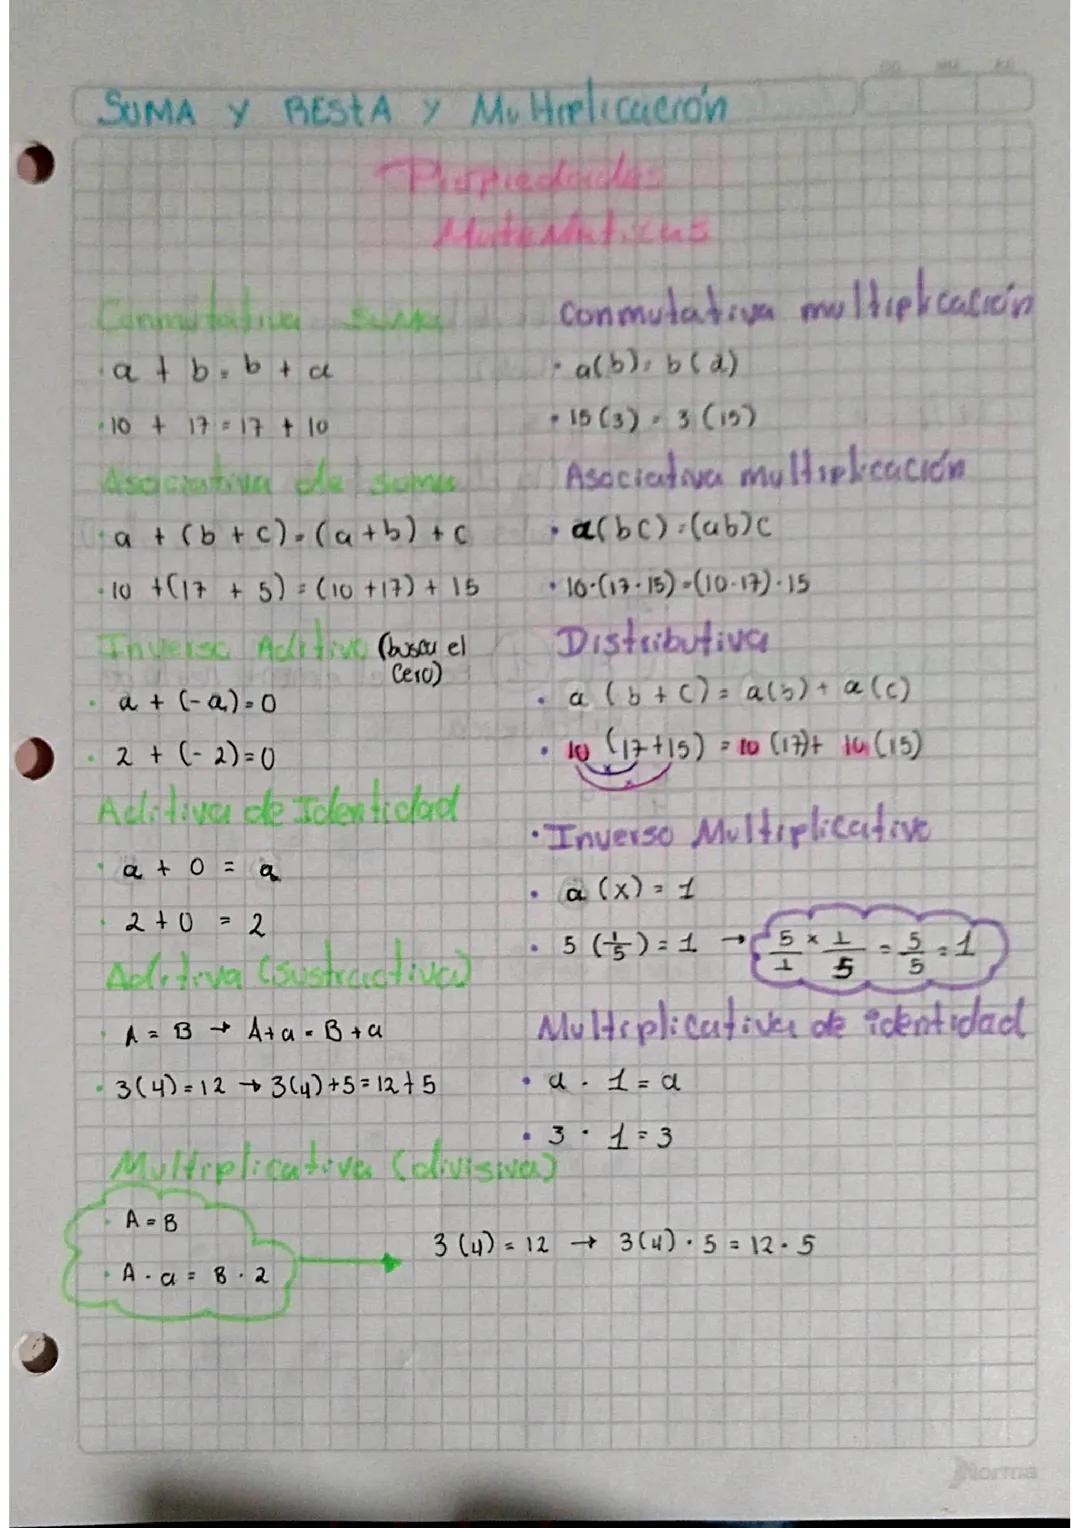 SUMA Y RESTA Y Multiplicación
Propiedades
Matematicas
Conmutativa suma
a + b = b + a
10 + 17 = 17 + 10
Asociativa de suma
a + (b + c) = (a + b) + c
10 + (17 + 5) = (10 + 17) + 15
Inverso Aditivo (busca el
Cero)
a + (-a) = 0
2 + (-2) = 0
Aditiva de Identidad
a + 0 = a
2 + 0 = 2
Aditiva (sustractiva)
A = B → A + a = B + a
3(4) = 12 → 3(4) + 5 = 12 + 5
Multiplicativa (divisiva)
A = B
A · a = B · 2
3(4) = 12 → 3(4) · 5 = 12 · 5
Conmutativa multiplicación
a(b) = b(a)
15(3) = 3(15)
Asociativa multiplicación
a(bc) = (ab)c
10·(17·15) = (10·17)·15
Distributiva
a (b + c) = a(b) + a(c)
10 (17+15) = 10 (17) + 10 (15)
Inverso Multiplicativo
a (x) = 1
5 (1/5) = 1 → 5/1 × 1/5 = 5/5 = 1
Multiplicativa de identidad
a · 1 = a
3 · 1 = 3
Norma